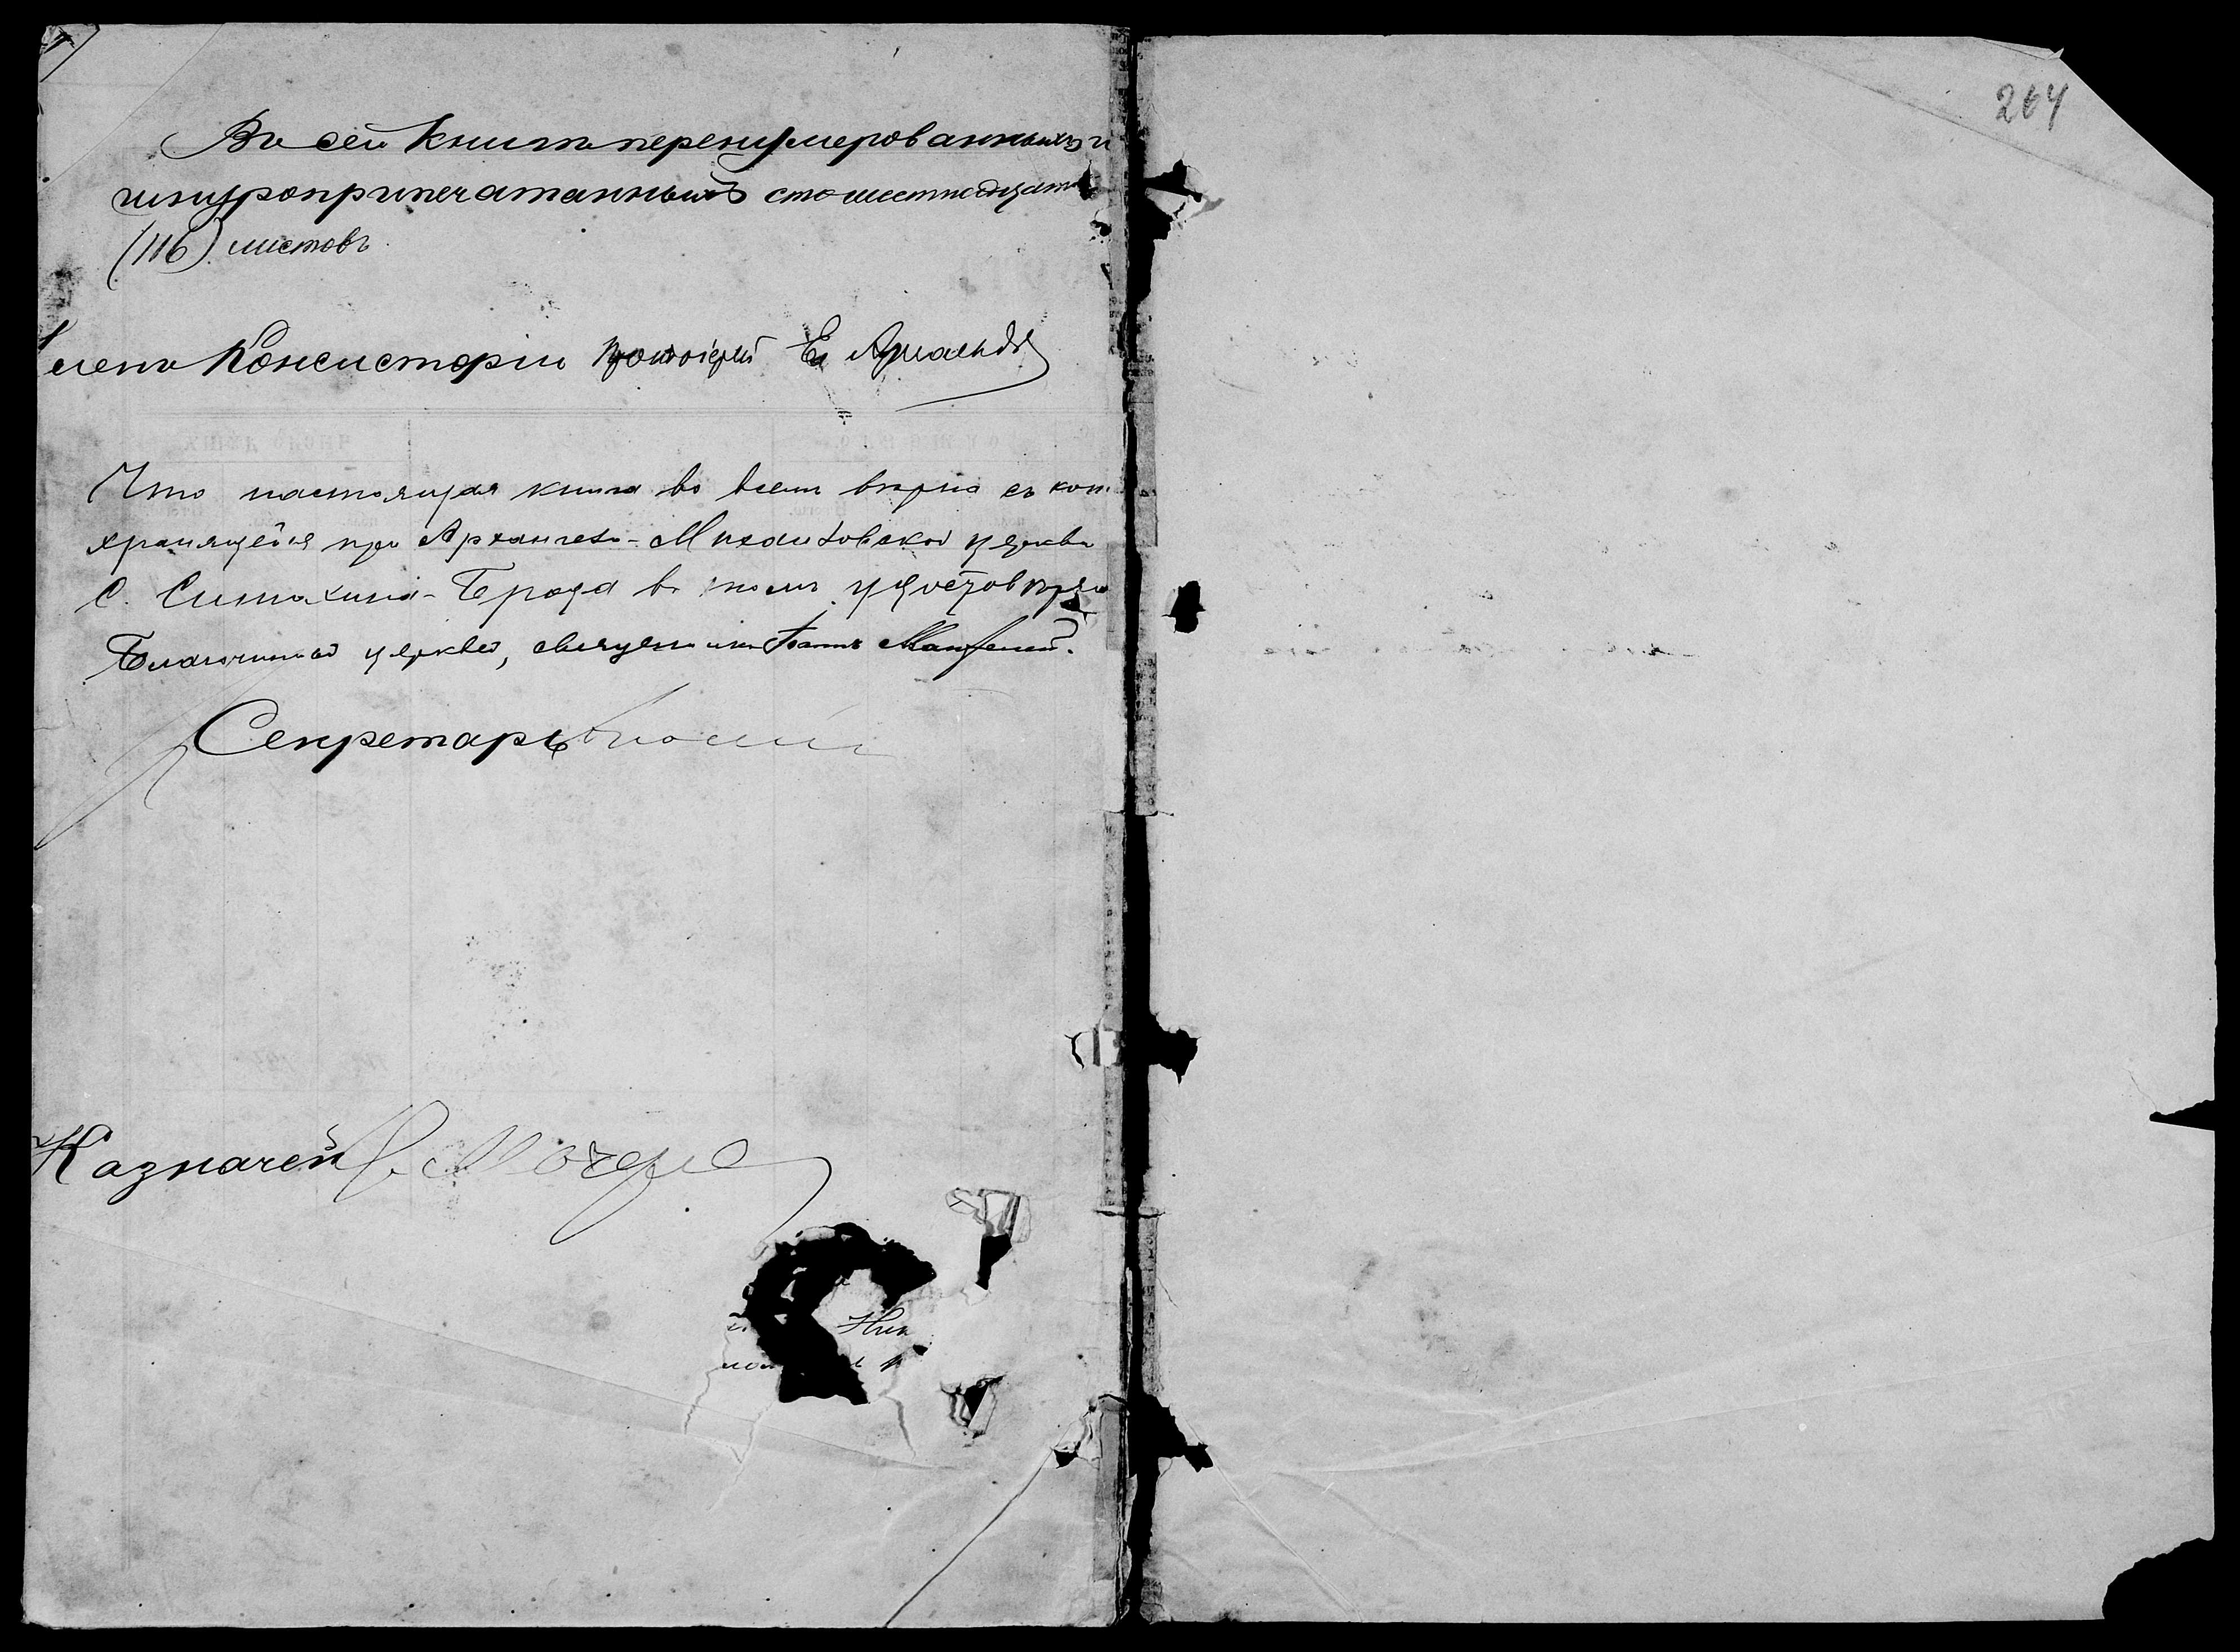 Въ сей книгѣ перенумерованныхъ и
шнуроприпечатанныхъ сто шестнадцать
(116) листовъ
Членъ Консисторіи Протоіерей
Что настоящая книга во всемъ вѣрна съ коп
хранящейся при Архангело-Михайловской церкви
С. Синюхина-Брода въ томъ удостовѣряю
Благочинный церквей, священникъ Іоаннъ
Секретарь
Казначей
Ник
264